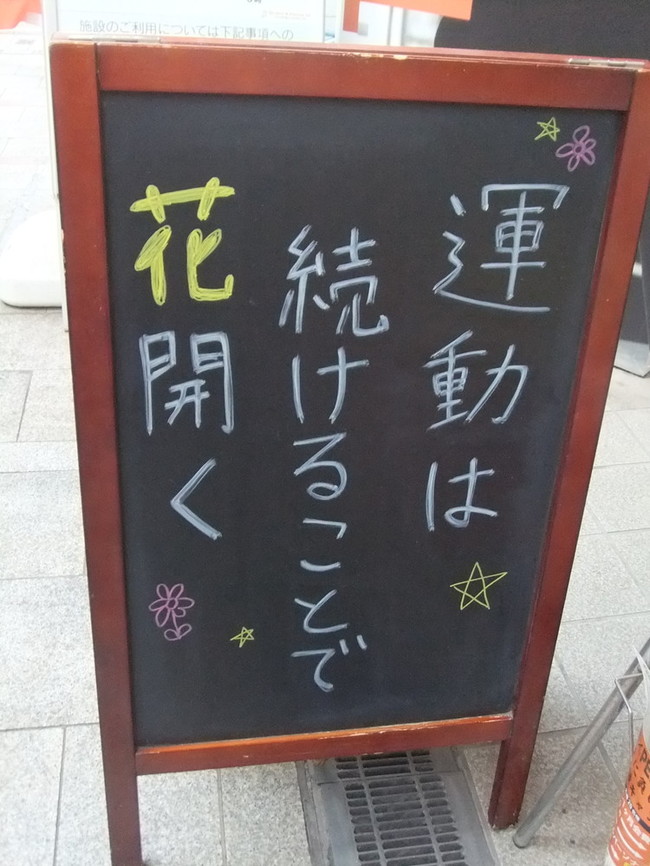 施設のご利用については下記事項への
運動は
続けることで
花開く